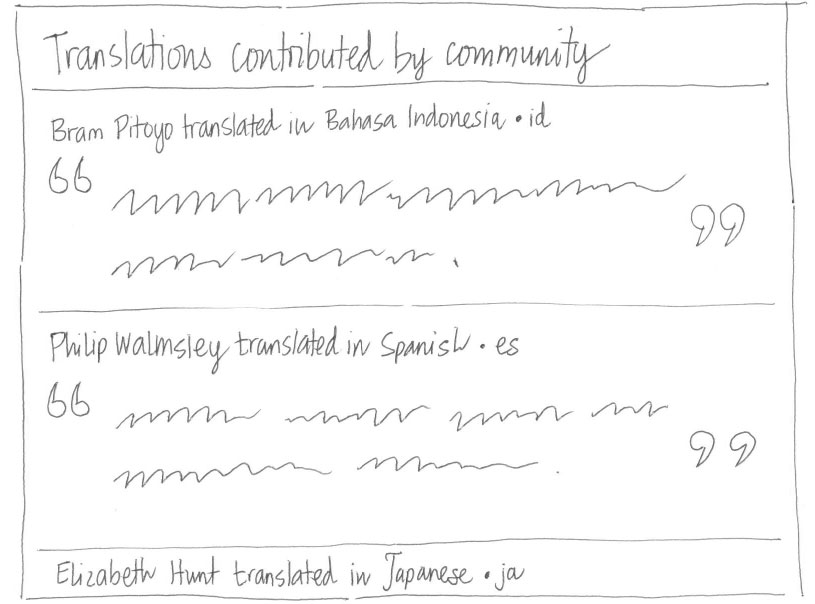 Translations contributed by community
Bram Pitoyo translated in Bahasa Indonesia • id
“
”
Philip Walmsley translated in Spanish • es
“
”
Elizabeth Hunt translated in Japanese • ja